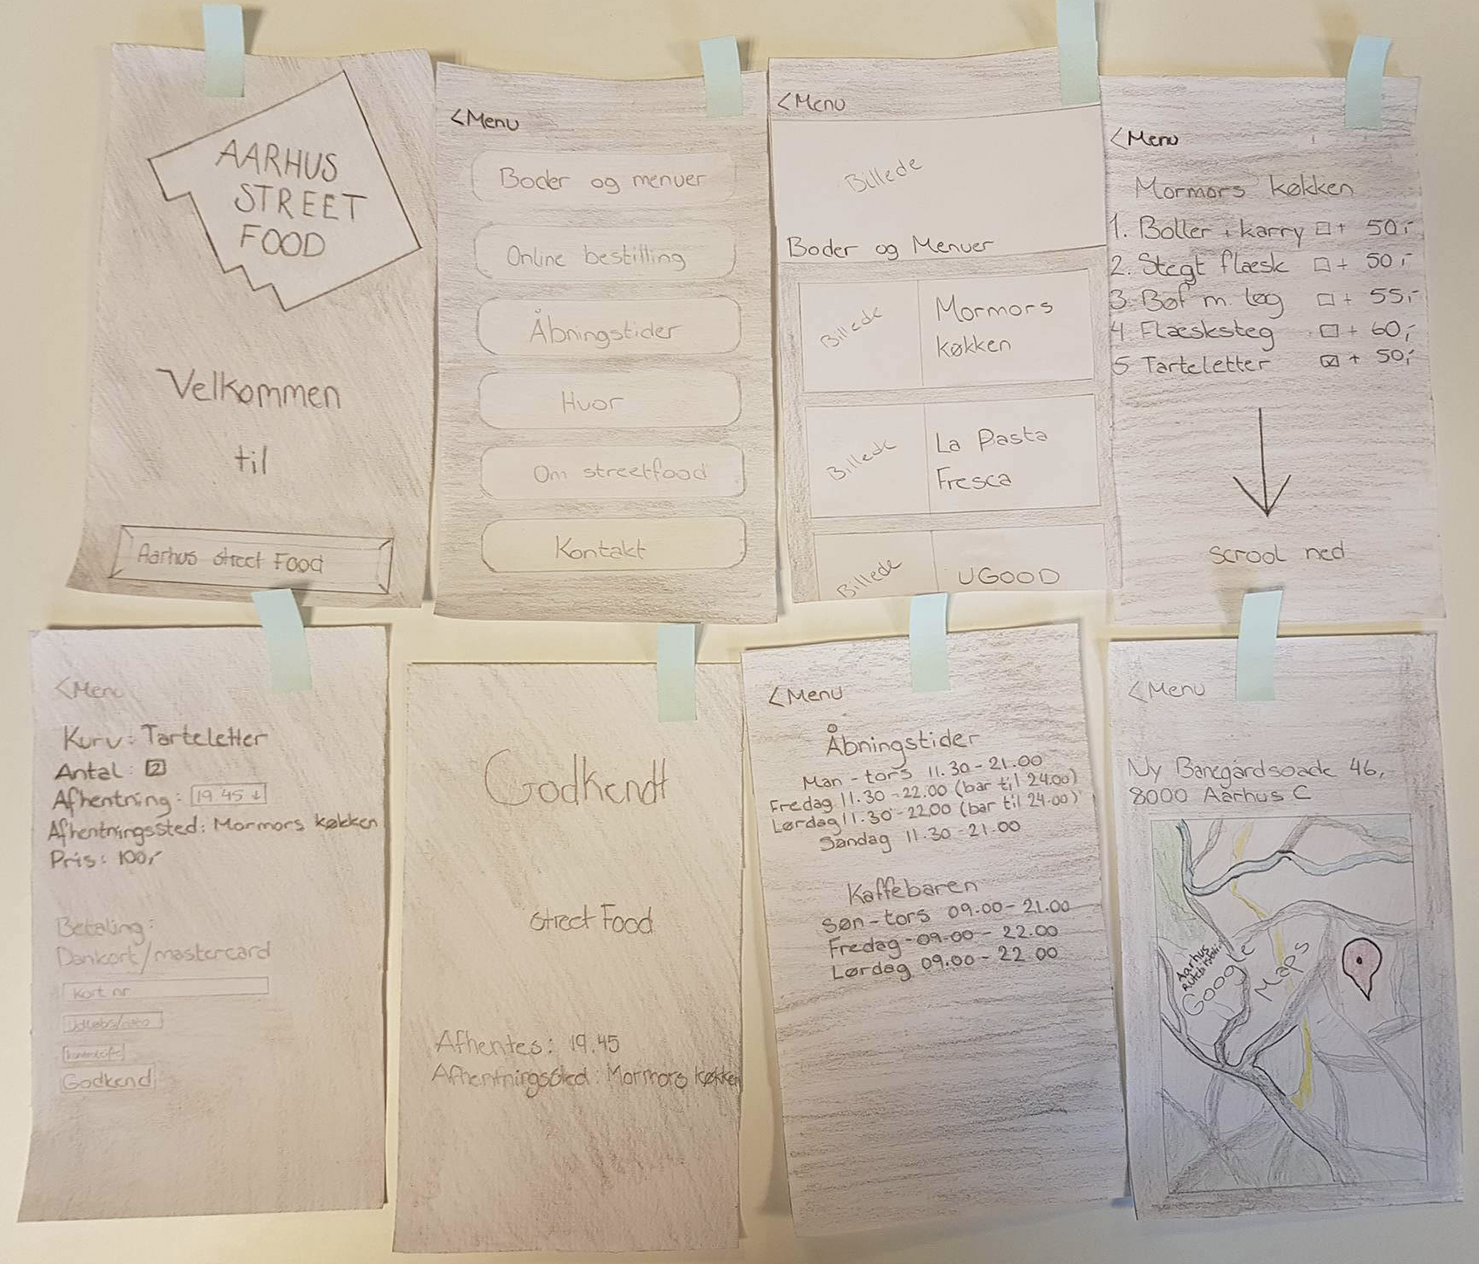 AARHUS
STREET
FOOD
Velkommen
til
Aarhus street Food
<Menu
Boder og menuer
Online bestilling
Åbningstider
Hvor
Om streetfood
Kontakt
<Menu
Billede
Boder og Menuer
Billede
Mormors
køkken
Billede
La Pasta
Fresca
Billede
UGOOD
<Menu
Mormors køkken
1. Boller i karry ☐ + 50,-
2. Stegt flæsk ☐ + 50,-
3. Bøf m. løg ☐ + 55,-
4. Flæsksteg ☐ + 60,-
5 Tarteletter ☑ + 50,-
scrool ned
<Menu
Kurv: Tarteletter
Antal: 2
Afhentning: 19.45 ↓
Afhentningssted: Mormors køkken
Pris: 100,-
Betaling:
Dankort/mastercard
Kort nr
Godkend
Godkendt
street Food
Afhentes: 19.45
Afhentningssted: Mormors køkken
<Menu
Åbningstider
Man - tors 11.30 - 21.00
Fredag 11.30 - 22.00 (bar til 24.00)
Lørdag 11.30 - 22.00 (bar til 24.00)
Søndag 11.30 - 21.00
Kaffebaren
Søn - tors 09.00 - 21.00
Fredag - 09.00 - 22.00
Lørdag 09.00 - 22.00
<Menu
Ny Banegårdsgade 46,
8000 Aarhus C
Aarhus
Google
Maps